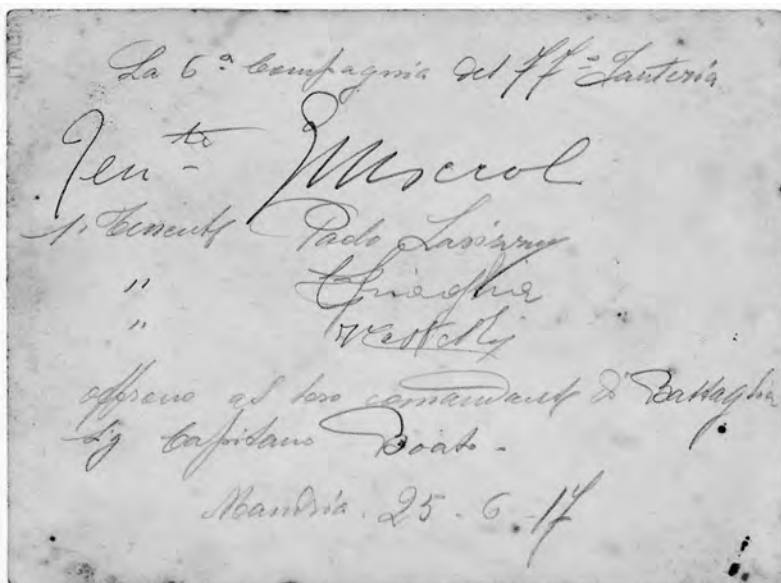 La 6ª Compagnia del 77º Fanteria
Ten.te
S. Tenente Paolo
" Quaglia
"
offrono al loro comandante di Battaglia
Sig Capitano Boato -
Mandria. 25 - 6 - 17